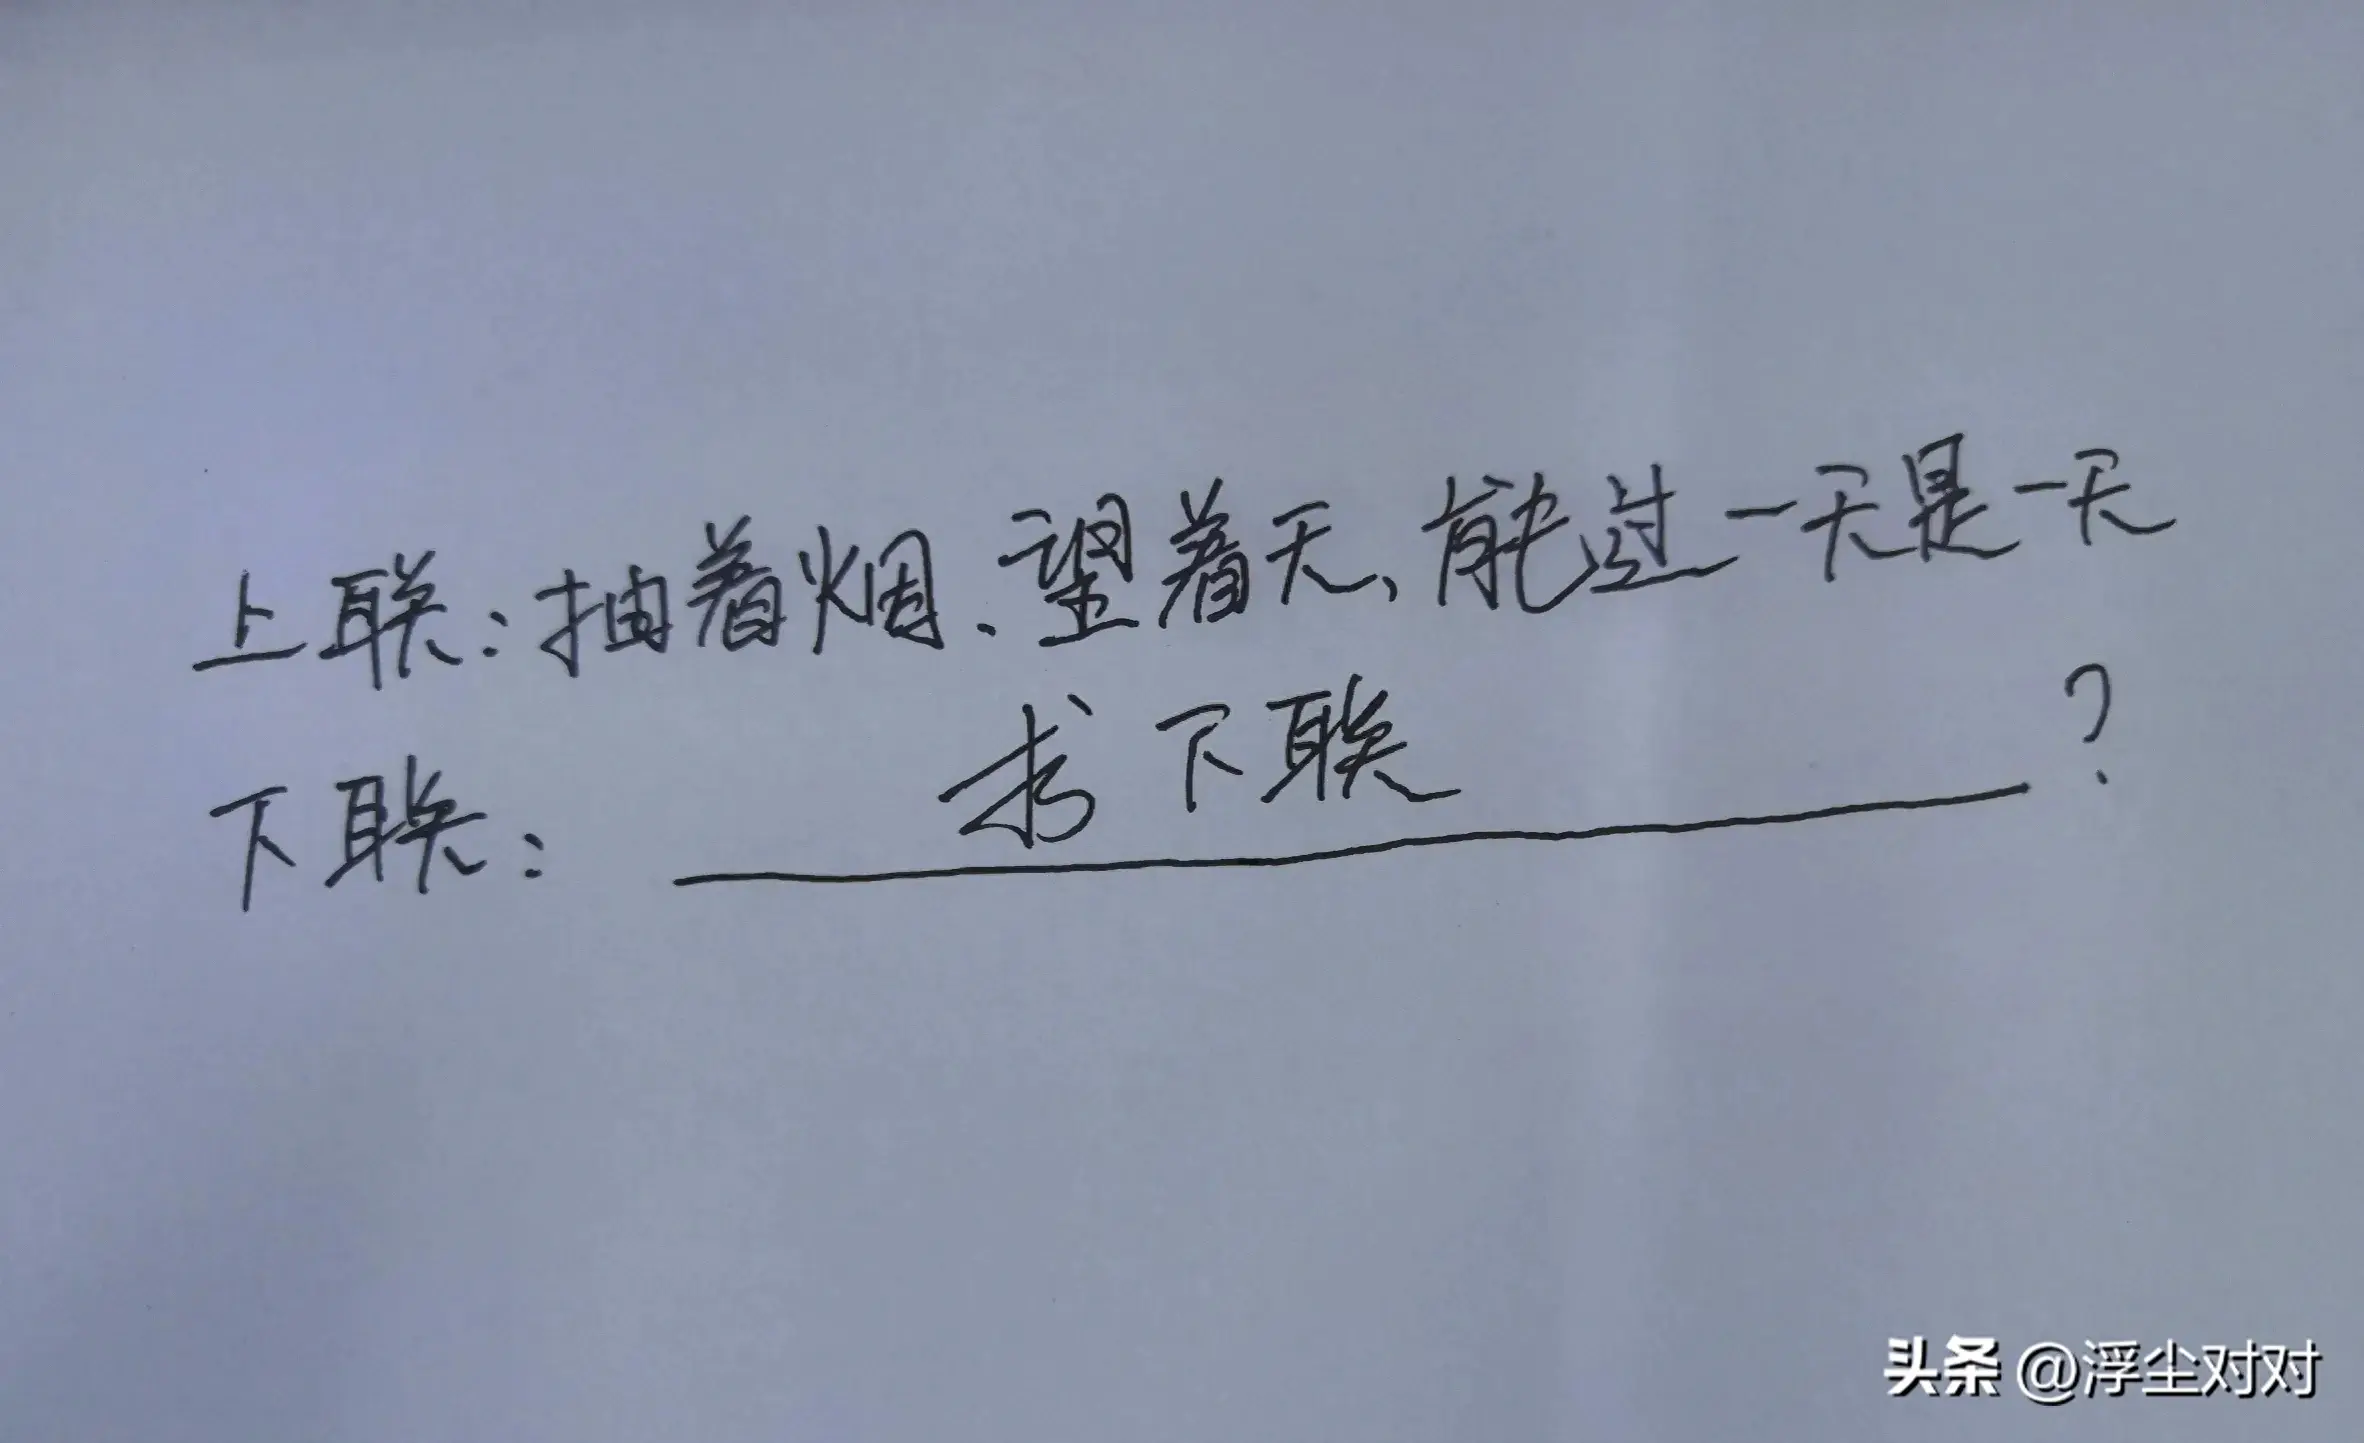 上联：抽着烟、望着天、能过一天是一天
下联：求下联？
头条 @浮尘对对